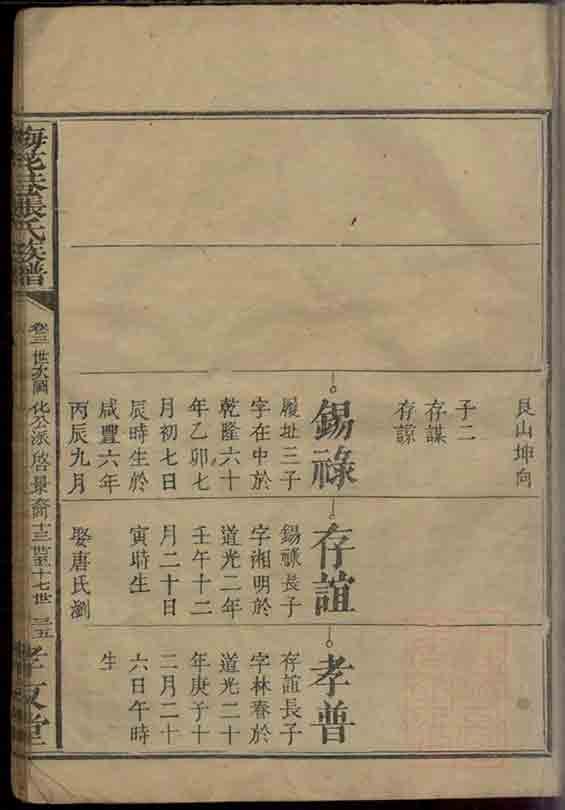 艮山坤向
子二
存謀
存諒
錫祿
履址三子
字在中於
乾隆六十
年乙卯七
月初七日
辰時生於
咸豐六年
丙辰九月
存誼
錫祿長子
字湘明於
道光二年
壬午十二
月二十日
寅時生
娶唐氏瀏
孝普
存誼長子
字林春於
道光二十
年庚子十
二月二十
六日午時
生
張氏族譜
卷三 世次圖 化公派啓景裔十三世至十七世 三五
孝友堂